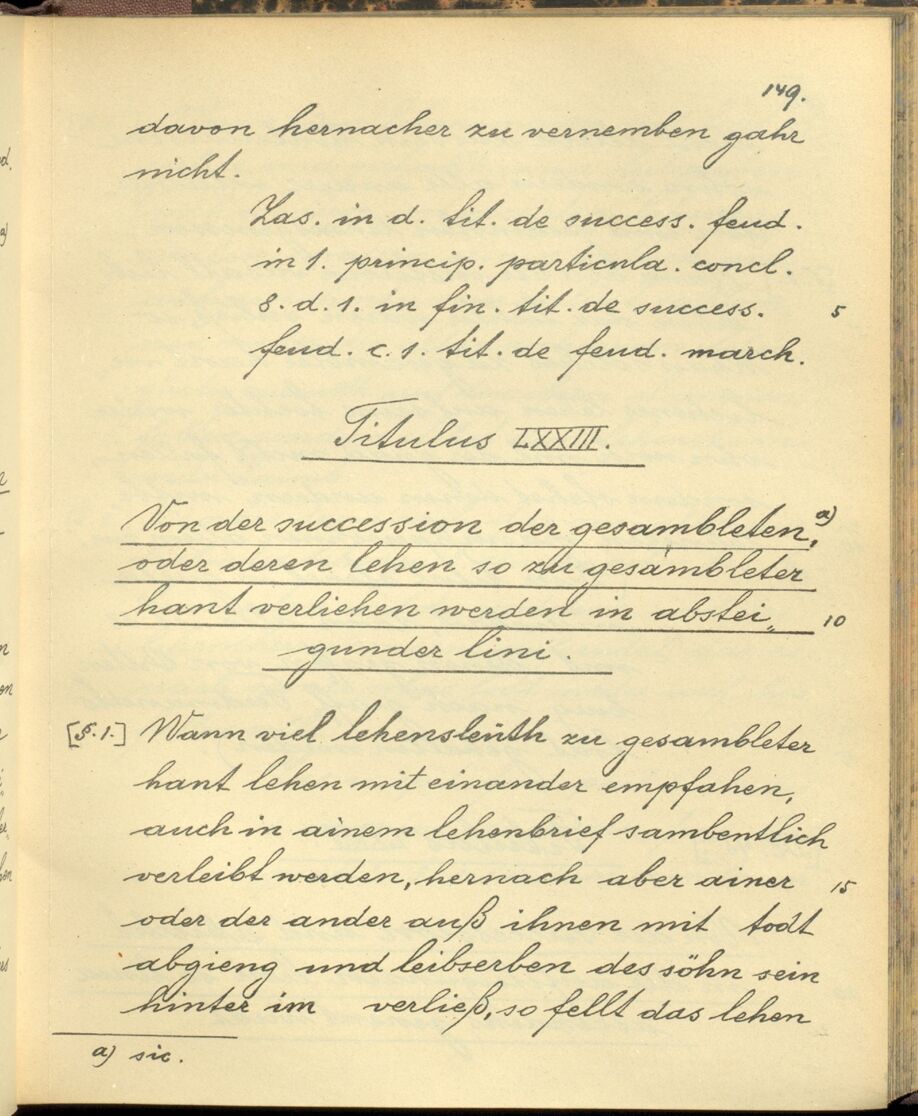 149.
davon hernacher zu vernemben gahr
nicht.
Zas. in d. tit. de success. feud.
in 1. princip. particula. concl.
8. d. 1. in fin. tit. de success. 5
feud. c. 1. tit. de feud. march.
Titulus LXXIII.
Von der succession der gesambleten, a)
oder deren lehen so zu gesambleter
hant verliehen werden in abstei„ 10
gunder lini.
[§. 1.] Wann viel lehensleüth zu gesambleter
hant lehen mit einander empfahen,
auch in ainem lehenbrief sambentlich
verleibt werden, hernach aber ainer 15
oder der ander auß ihnen mit todt
abgieng und leibserben des söhn sein
hinter im verließ, so fellt das lehen
a) sic.